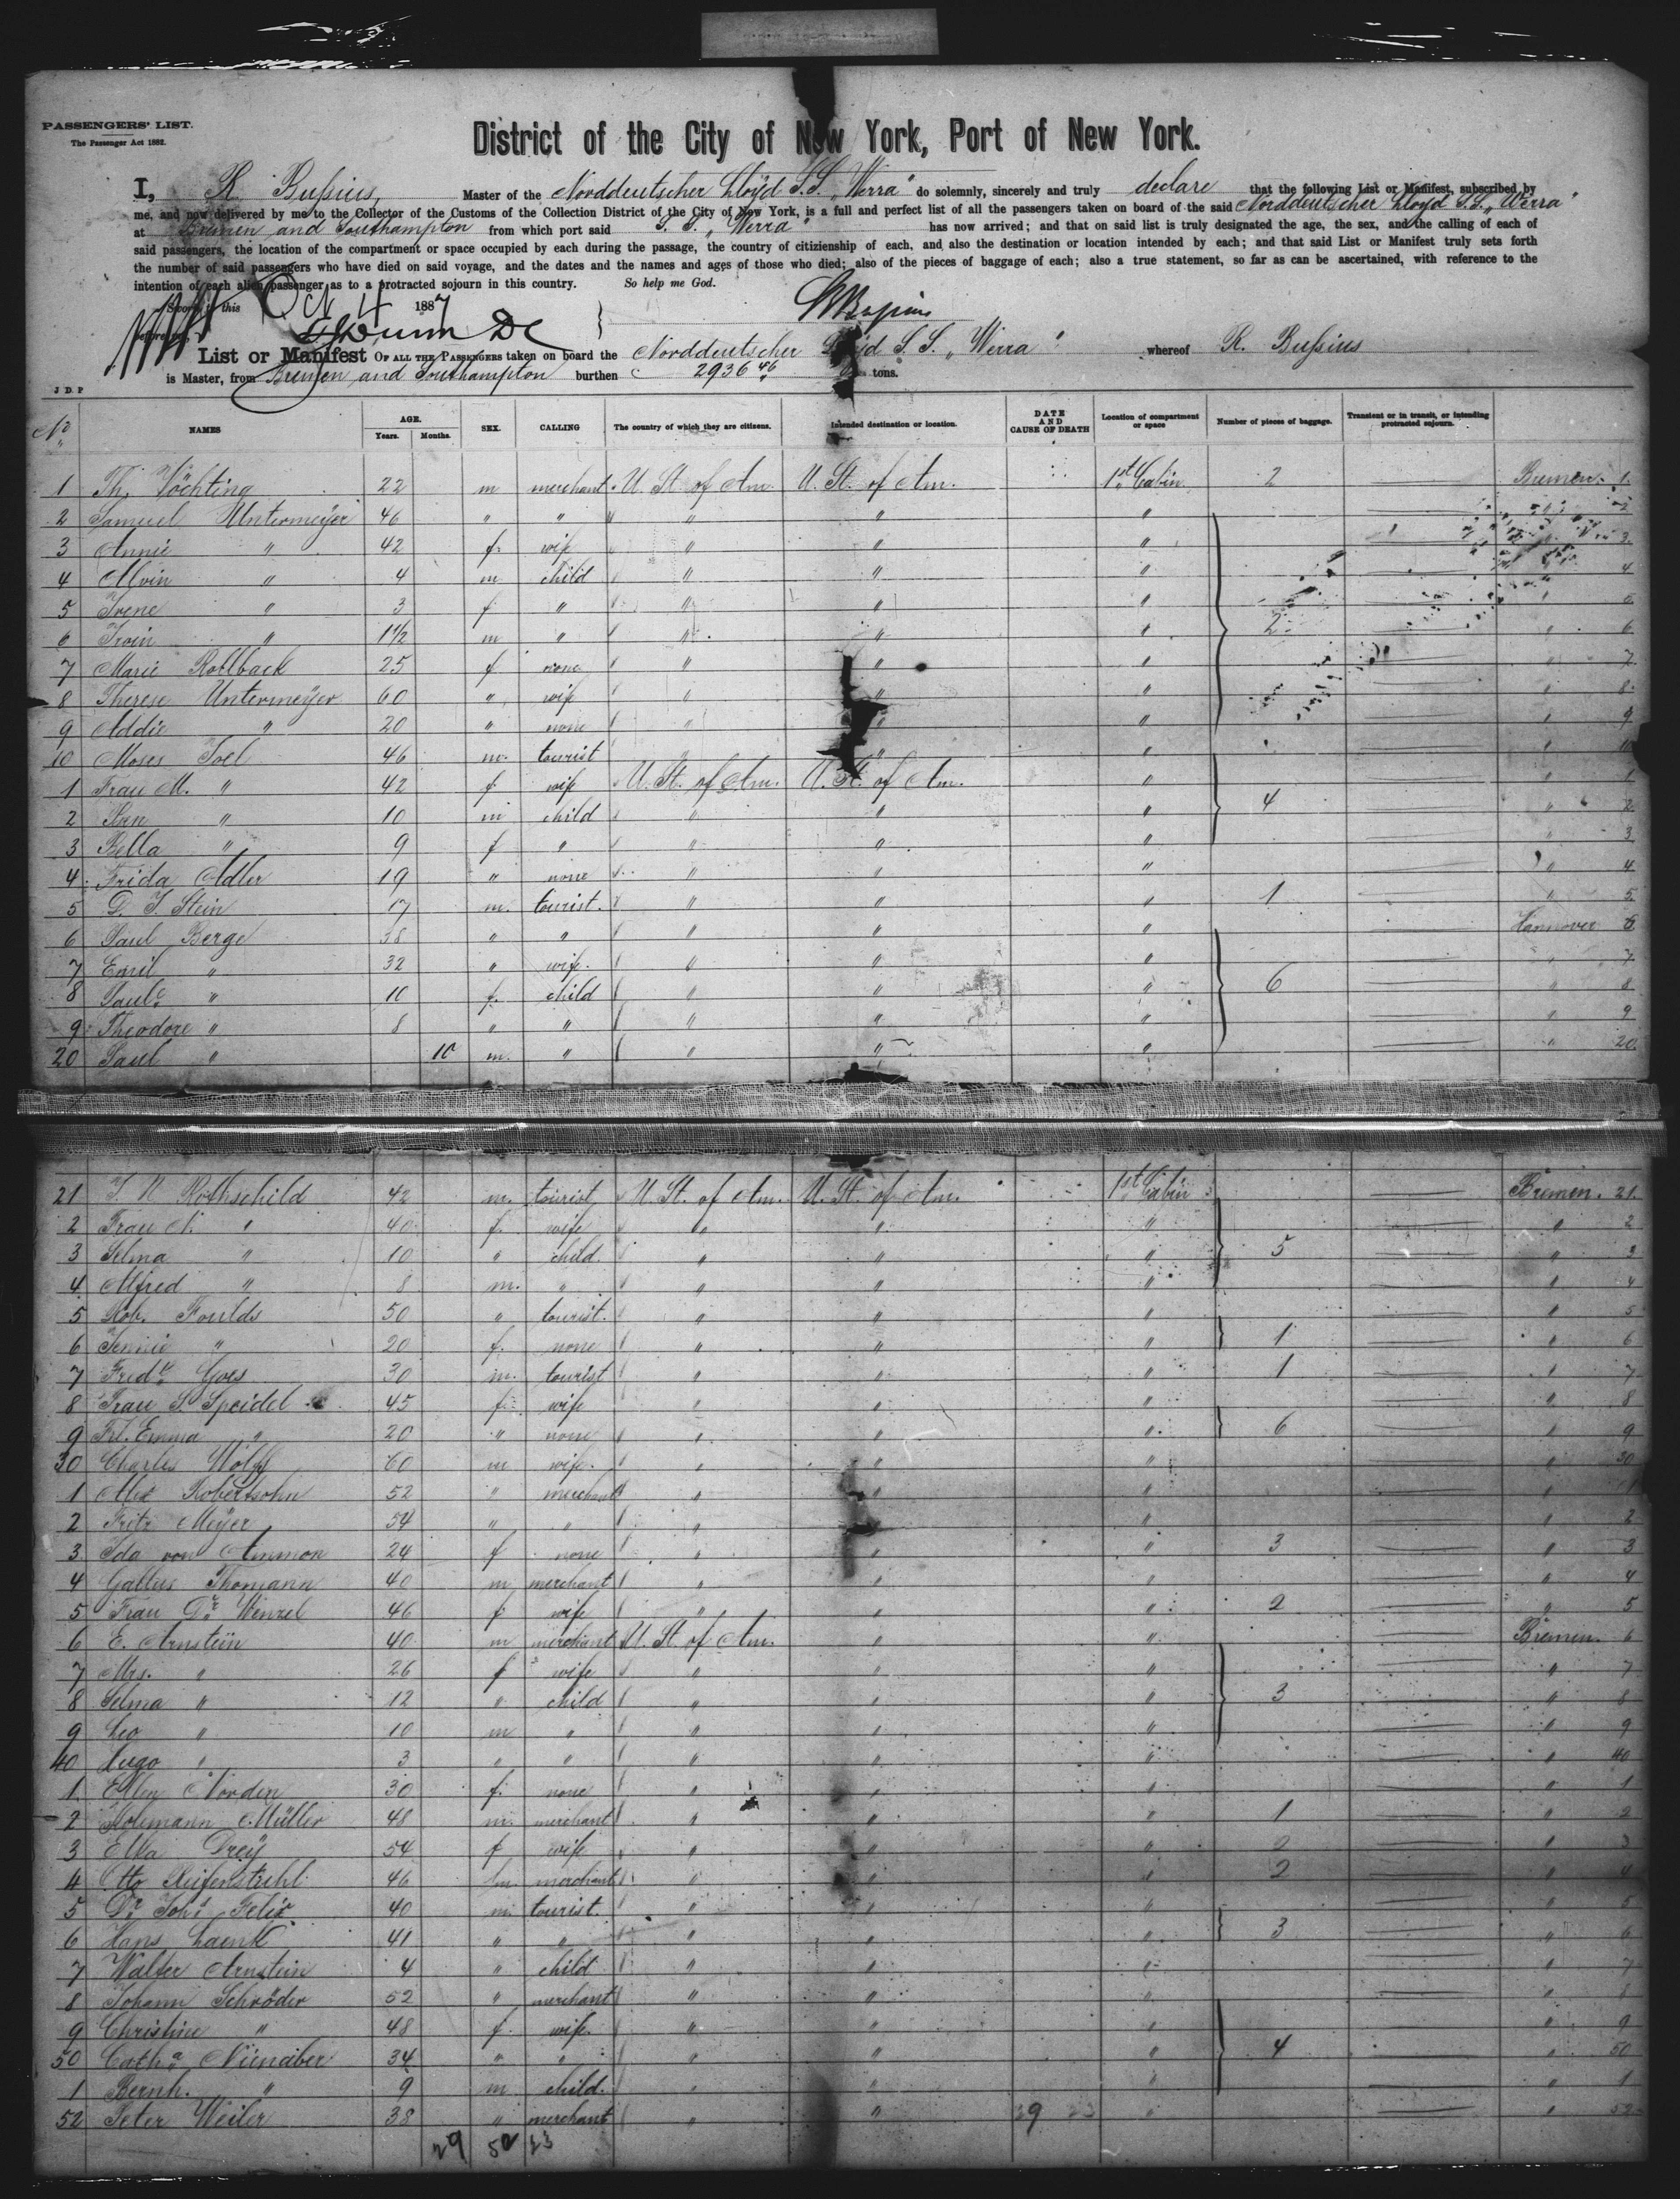 PASSENGERS' LIST.
The Passenger Act 1882.
District of the City of New York, Port of New York.
I, R. Bussius, Master of the Norddeutscher Lloyd S.S. „Werra" do solemnly, sincerely and truly declare that the following List or Manifest, subscribed by
me, and now delivered by me to the Collector of the Customs of the Collection District of the City of New York, is a full and perfect list of all the passengers taken on board of the said Norddeutscher Lloyd S.S. „Werra"
at Bremen and Southampton from which port said S. S. „Werra" has now arrived; and that on said list is truly designated the age, the sex, and the calling of each of
said passengers, the location of the compartment or space occupied by each during the passage, the country of citizienship of each, and also the destination or location intended by each; and that said List or Manifest truly sets forth
the number of said passengers who have died on said voyage, and the dates and the names and ages of those who died; also of the pieces of baggage of each; also a true statement, so far as can be ascertained, with reference to the
intention of each alien passenger as to a protracted sojourn in this country. So help me God.
Sworn to this Oct 4 1887 R Bussius
before me
List or Manifest OF ALL THE PASSENGERS taken on board the Norddeutscher Lloyd S.S. „Werra" whereof R. Bussius
is Master, from Bremen and Southampton burthen 2936 46 tons.
J D P
No NAMES AGE. Years. Months. SEX. CALLING The country of which they are citizens. Intended destination or location. DATE AND CAUSE OF DEATH Location of compartment or space Number of pieces of baggage. Transient or in transit, or intending protracted sojourn.
1 Th. Vöchting 22 m merchant U. St. of Am. U. St. of Am. 1st Cabin 2 Bremen. 1.
2 Samuel Untermeyer 46 " " " " " " 2
3 Annie " 42 f. wife " " " " 3.
4 Alvin " 4 m child " " " 4
5 Irene " 3 f. " " " " " 5
6 Irvin " 1 1/2 m " " " " 2 " 6
7 Marie Rollback 25 f none " " " " 7.
8 Therese Untermeyer 60 " wife " " " " 8.
9 Addie " 20 " none " " " " 9
10 Moses Joel 46 m. tourist " " " " 10
1 Frau M. " 42 f. wife U. St. of Am. U. St. of Am. " " 1
2 " 10 m child " " " 4 " 2
3 Bella " 9 f " " " " " 3
4 Frida Adler 19 " none " " " " 4
5 D. J. Stein 17 m. tourist. " " " 1 " 5
6 Paul Berge 38 " " " " " Hannover 6
7 Emil " 32 " wife. " " " " 7
8 " 10 f. child " " " 6 " 8
9 Theodore " 8 " " " " " " 9
20 Paul " 10 m. " " " " " 20.
21 J. N Rothschild 42 m. tourist U. St. of Am. U. St. of Am. 1st Cabin Bremen. 21.
2 Frau N. " 40 f. wife " " " " 2
3 Selma " 10 " child. " " " 5 " 3
4 Alfred " 8 m. " " " " " 4
5 Rob. Foulds 50 " tourist. " " " " 5
6 Jennie " 20 f. none " " " 1 " 6
7 Fredk. Goes 30 m. tourist " " " 1 " 7
8 Frau S. Speidel 45 f. wife " " " " 8
9 Frl. Emma " 20 " none " " " 6 " 9
30 Charles Wolff 60 m wife. " " " " 30
1 Alex Robertsohn 52 " merchant " " " " 1
2 Fritz Meyer 54 " " " " " " 2
3 Ida von Ammon 24 f none " " " 3 " 3
4 Gallus Thomann 40 m merchant " " " " 4
5 Frau Dr. Wenzel 46 f wife " " " 2 " 5
6 E. Arnstein 40 m merchant U. St. of Am. " " Bremen. 6
7 Mrs. " 26 f wife " " " " 7
8 Selma " 12 " child " " " 3 " 8
9 Leo " 10 m " " " " " 9
40 Hugo " 3 " " " " " " 40
1 Ellen Norden 30 f. none " " " " 1
2 Müller 48 m. merchant " " " 1 " 2
3 Elka Drey 54 f wife " " " 2 " 3
4 Otto Reifenstuhl 46 m. merchant " " " 2 " 4
5 Dr. Johs. Felix 40 m. tourist. " " " " 5
6 Hans Laenk 41 " " " " " 3 " 6
7 Walter Arnstein 4 " child " " " " 7
8 Johann Schröder 52 " merchant " " " " 8
9 Christine " 48 f. wife. " " " " 9
50 Catha. Nienaber 34 " " " " " 4 " 50
1 Bernh. " 9 m child. " " " " 1
52 Peter Weiler 38 " merchant " " 29 23 " " 52
29 52 23